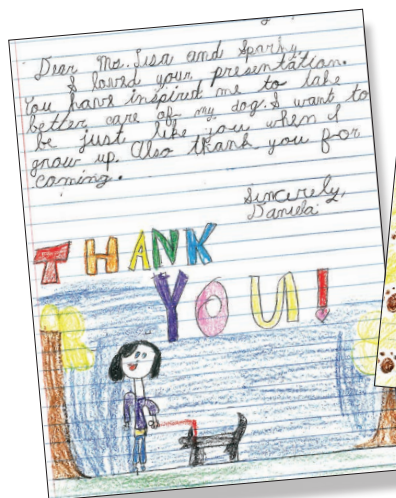 Dear Ms. Lisa and Sparky,
I loved your presentation.
You have inspired me to take
better care of my dog. I want to
be just like you when I
grow up. Also thank you for
coming.
Sincerely,
Daniela
THANK
YOU!